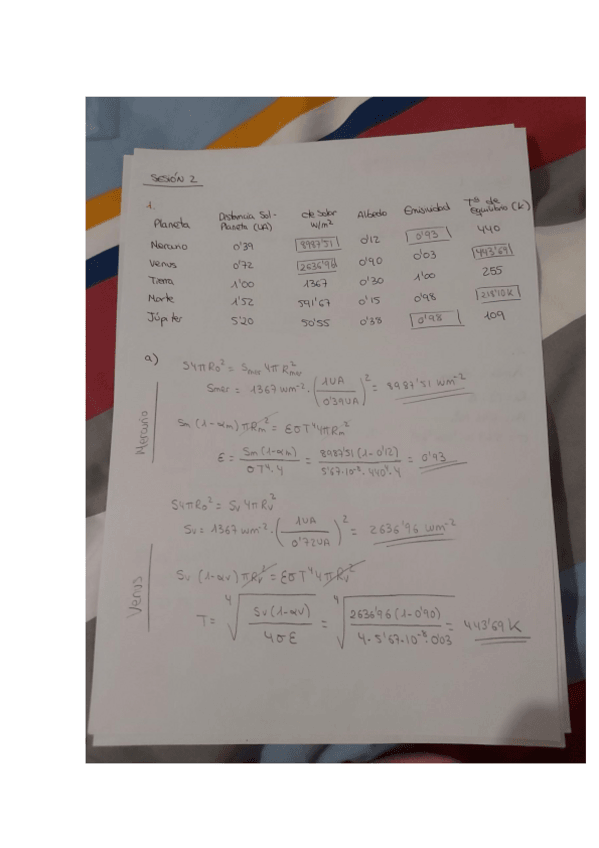 SESIÓN 2
1.
Planeta Distancia Sol-Planeta (UA) cte Solar W/m² Albedo Emisividad Tª de Equilibrio (K)
Mercurio 0'39 8987'51 0'12 0'93 440
Venus 0'72 2636'96 0'90 0'03 443'69
Tierra 1'00 1367 0'30 1'00 255
Marte 1'52 591'67 0'15 0'98 218'10K
Júpiter 5'20 50'55 0'38 0'98 109
a) S4πRo² = Smer 4πRmer²
Smer = 1367 Wm⁻² · (1UA / 0'39UA)² = 8987'51 Wm⁻²
Mercurio
Sm (1-αm) πRm² = εσT⁴4πRm²
ε = Sm (1-αm) / σT⁴·4 = 8987'51 (1-0'12) / 5'67·10⁻⁸·440⁴·4 = 0'93
S4πRo² = Sv 4πRv²
Sv = 1367 Wm⁻² · (1UA / 0'72UA)² = 2636'96 Wm⁻²
Venus
Sv (1-αv) πRv² = εσT⁴4πRv²
T = ⁴√(Sv (1-αv) / 4σε) = ⁴√(2636'96 (1-0'90) / 4·5'67·10⁻⁸·0'03) = 443'69 K